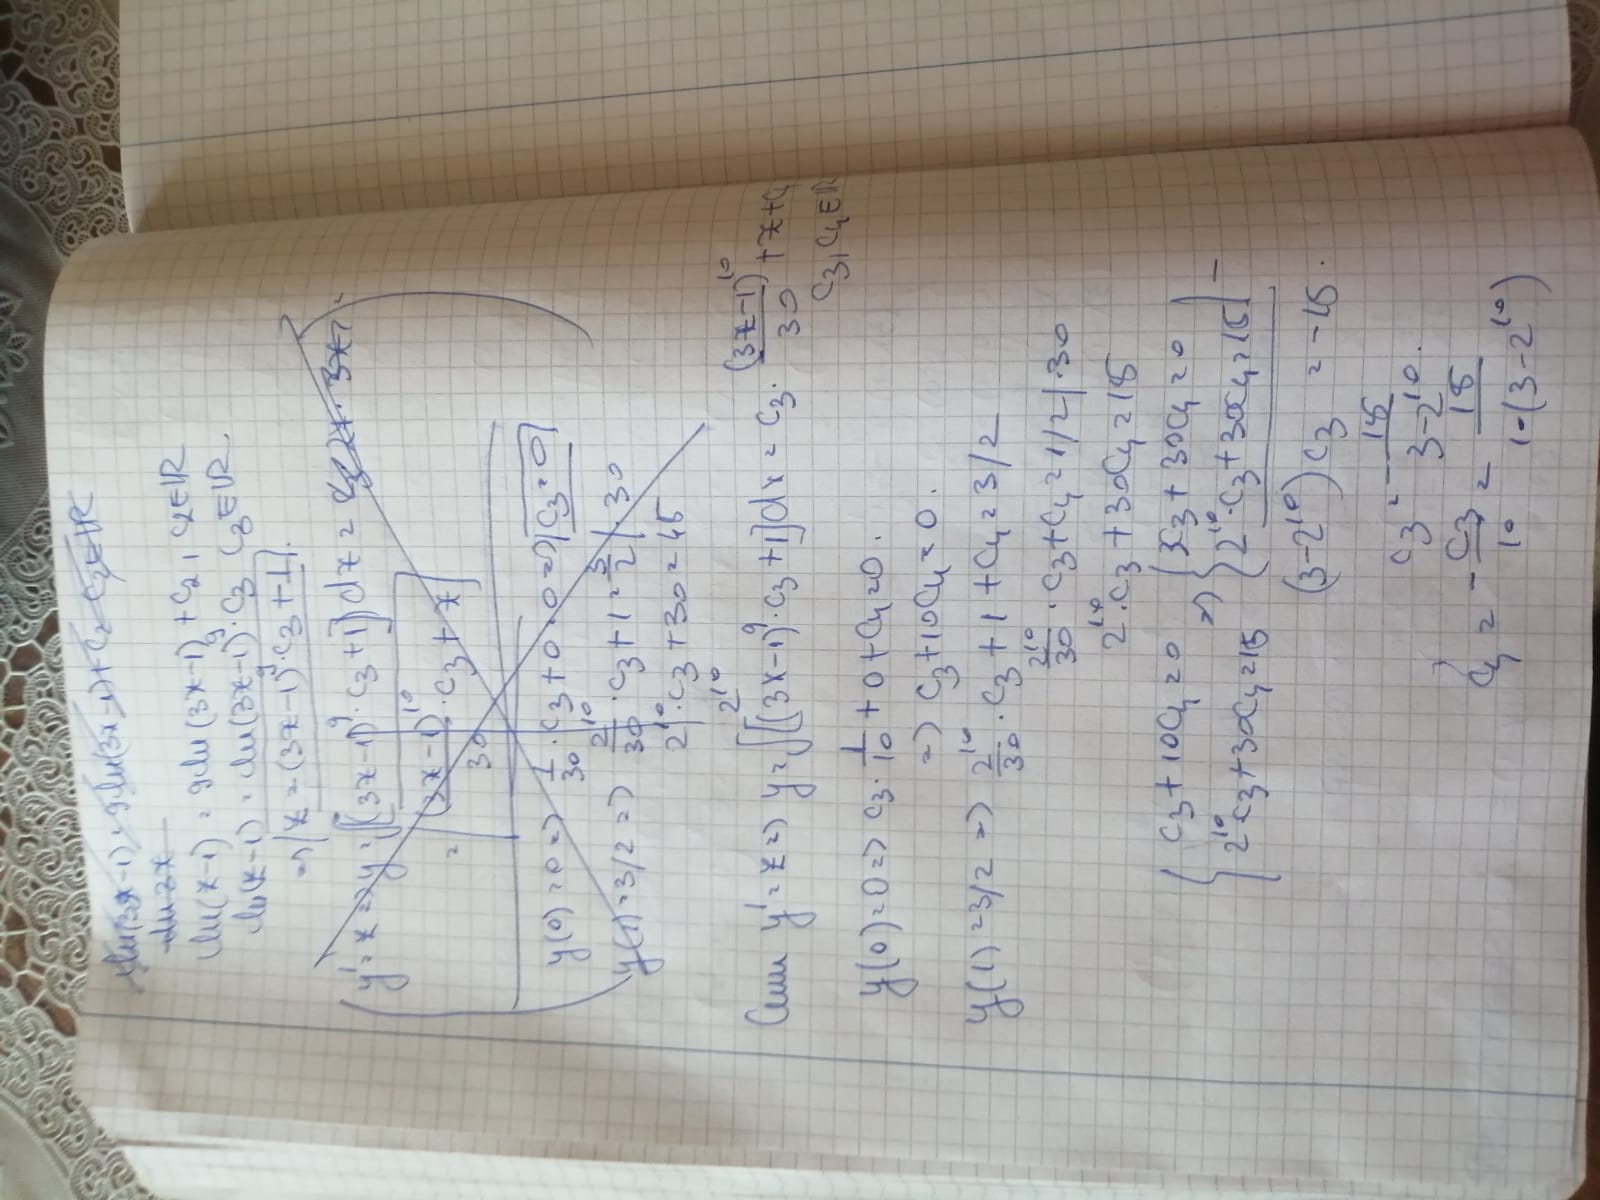 ln(3x-1) = 9ln(3x-1) + C2 C2∈ℝ
ln 3x
ln(z-1) = 9ln(3x-1) + C2, C2∈ℝ
ln(z-1) = ln(3x-1)⁹·C3 C3∈ℝ.
=> z = (3x-1)⁹·C3+1.
y' = z => y = ∫[(3x-1)⁹·C3+1]dx =
= (3x-1)¹⁰/30 · C3 + x
y(0)=0 => 1/30 · C3 + 0 = 0 => C3 = 0
y(1)=3/2 => 2¹⁰/30 · C3 + 1 = 3/2 | ·30
2¹⁰·C3 + 30 = 45
2¹⁰
y' = z => y = ∫[(3x-1)⁹·C3+1]dx = C3 · (3x-1)¹⁰/30 + x + C4
C3, C4∈ℝ
y(0)=0 => C3 · 1/10 + 0 + C4 = 0.
=> C3 + 10C4 = 0.
y(1) = 3/2 => 2¹⁰/30 · C3 + 1 + C4 = 3/2
2¹⁰/30 · C3 + C4 = 1/2 | ·30
2¹⁰·C3 + 30C4 = 15
{ C3 + 10C4 = 0 => { 3C3 + 30C4 = 0
2¹⁰C3 + 30C4 = 15 2¹⁰·C3 + 30C4 = 15 | −
(3-2¹⁰)C3 = -15.
C3 = - 15/(3-2¹⁰).
C4 = - C3/10 = 15/(10(3-2¹⁰))